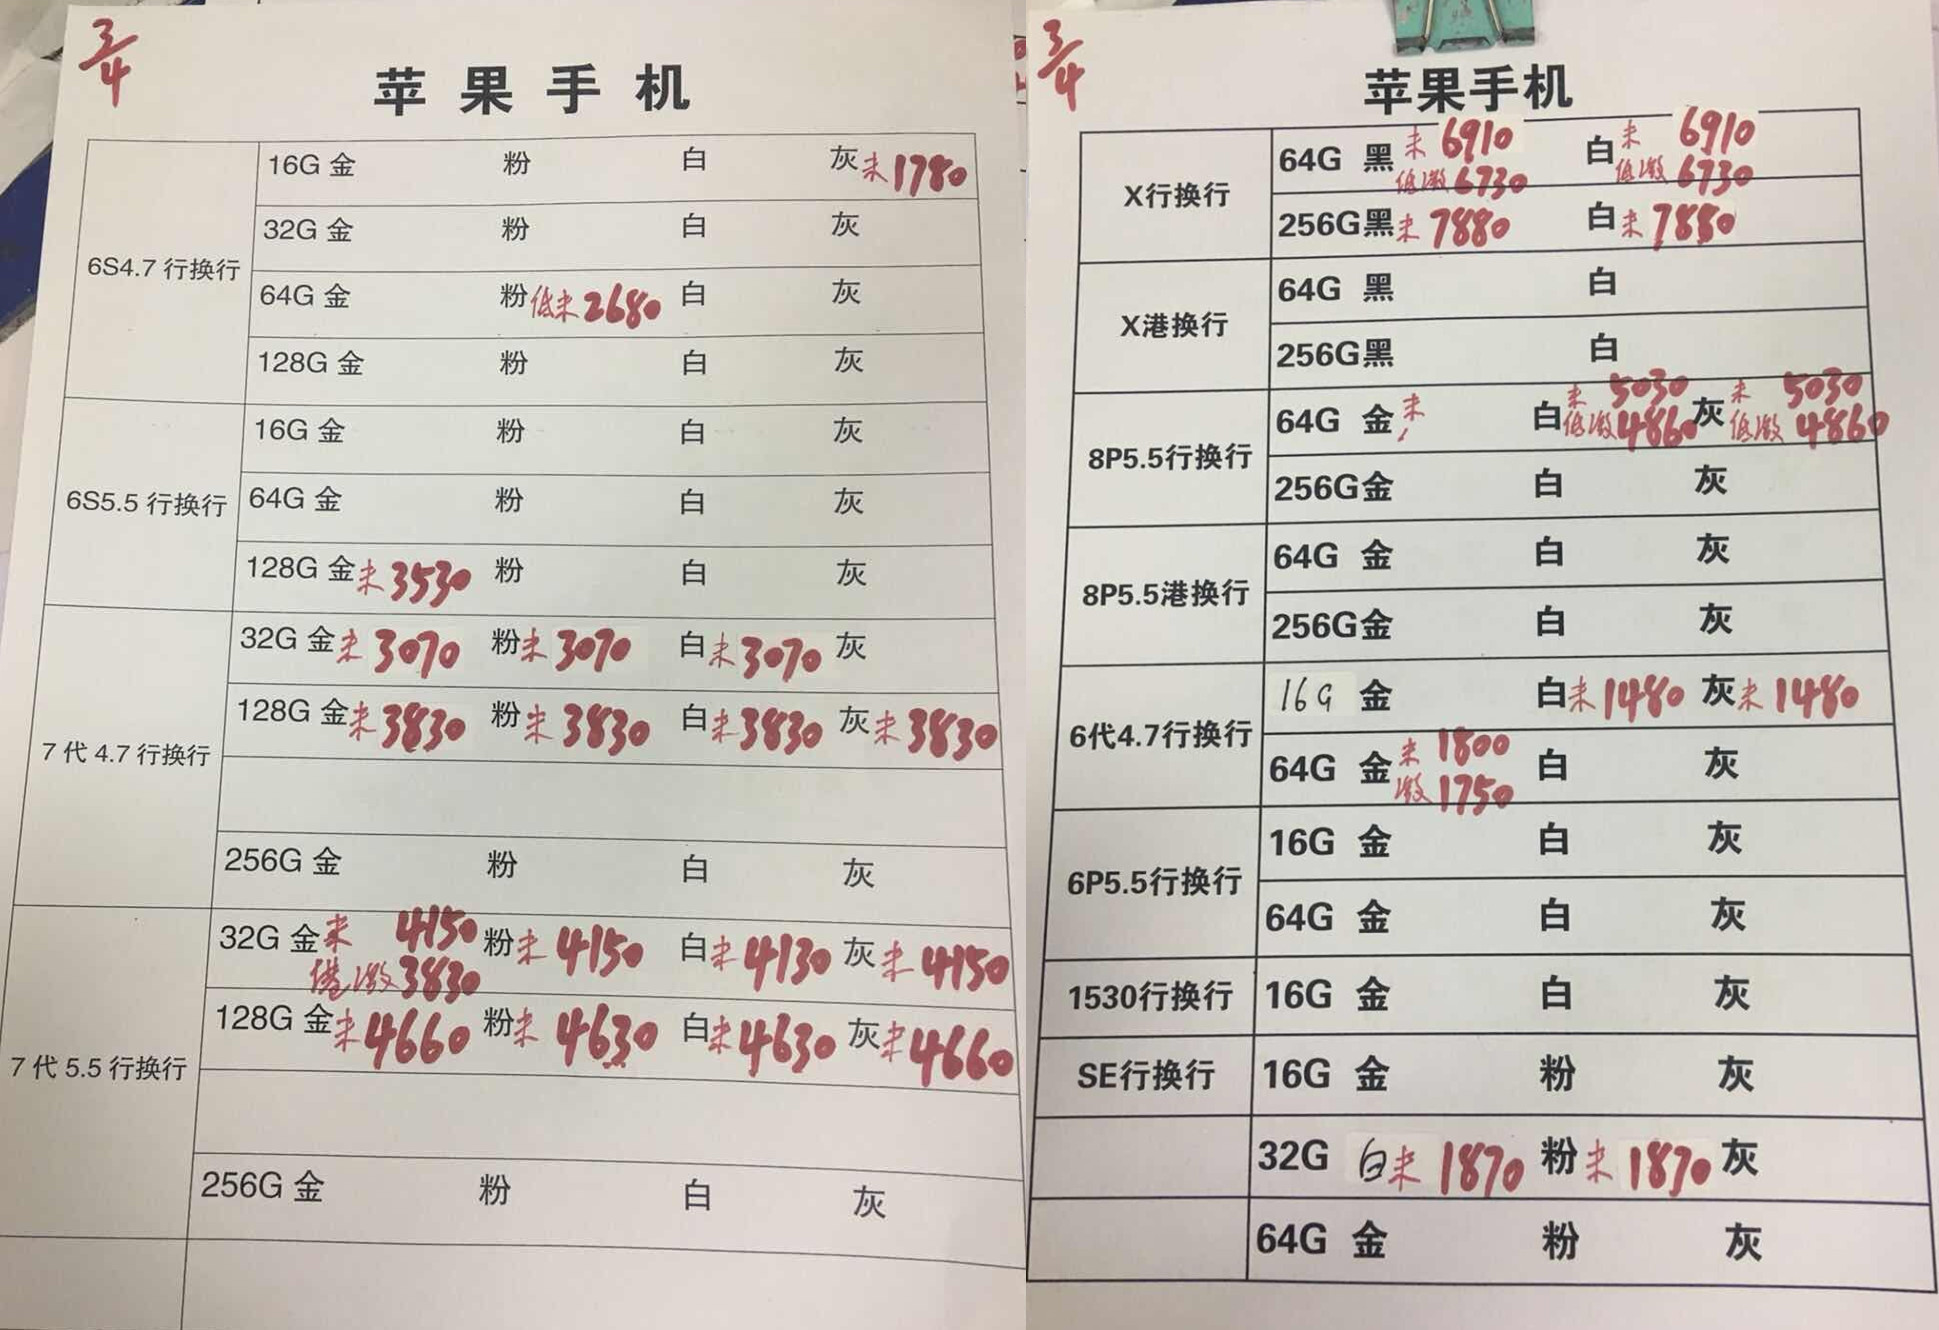 3/4
苹果手机
6S4.7 行换行
16G 金 粉 白 灰 未 1780
32G 金 粉 白 灰
64G 金 粉 低未 2680 白 灰
128G 金 粉 白 灰
6S5.5 行换行
16G 金 粉 白 灰
64G 金 粉 白 灰
128G 金 未 3530 粉 白 灰
7 代 4.7 行换行
32G 金 未 3070 粉 未 3070 白 未 3070 灰
128G 金 未 3830 粉 未 3830 白 未 3830 灰 未 3830
256G 金 粉 白 灰
7 代 5.5 行换行
32G 金 未 4150 粉 未 4150 白 未 4130 灰 未 4150
激 3830
128G 金 未 4660 粉 未 4630 白 未 4630 灰 未 4660
256G 金 粉 白 灰
3/4
苹果手机
X行换行
64G 黑 未 6910 白 未 6910
低激 6730 低激 6730
256G黑 未 7880 白 未 7880
X港换行
64G 黑 白
256G黑 白
8P5.5行换行
64G 金 未 白 未 5030 灰 未 5030
低激 4860 低激 4860
256G金 白 灰
8P5.5港换行
64G 金 白 灰
256G金 白 灰
6代4.7行换行
16G 金 白 未 1480 灰 未 1480
64G 金 未 1800 白 灰
激 1750
6P5.5行换行
16G 金 白 灰
64G 金 白 灰
1530行换行
16G 金 白 灰
SE行换行
16G 金 粉 灰
32G 白 未 1870 粉 未 1870 灰
64G 金 粉 灰